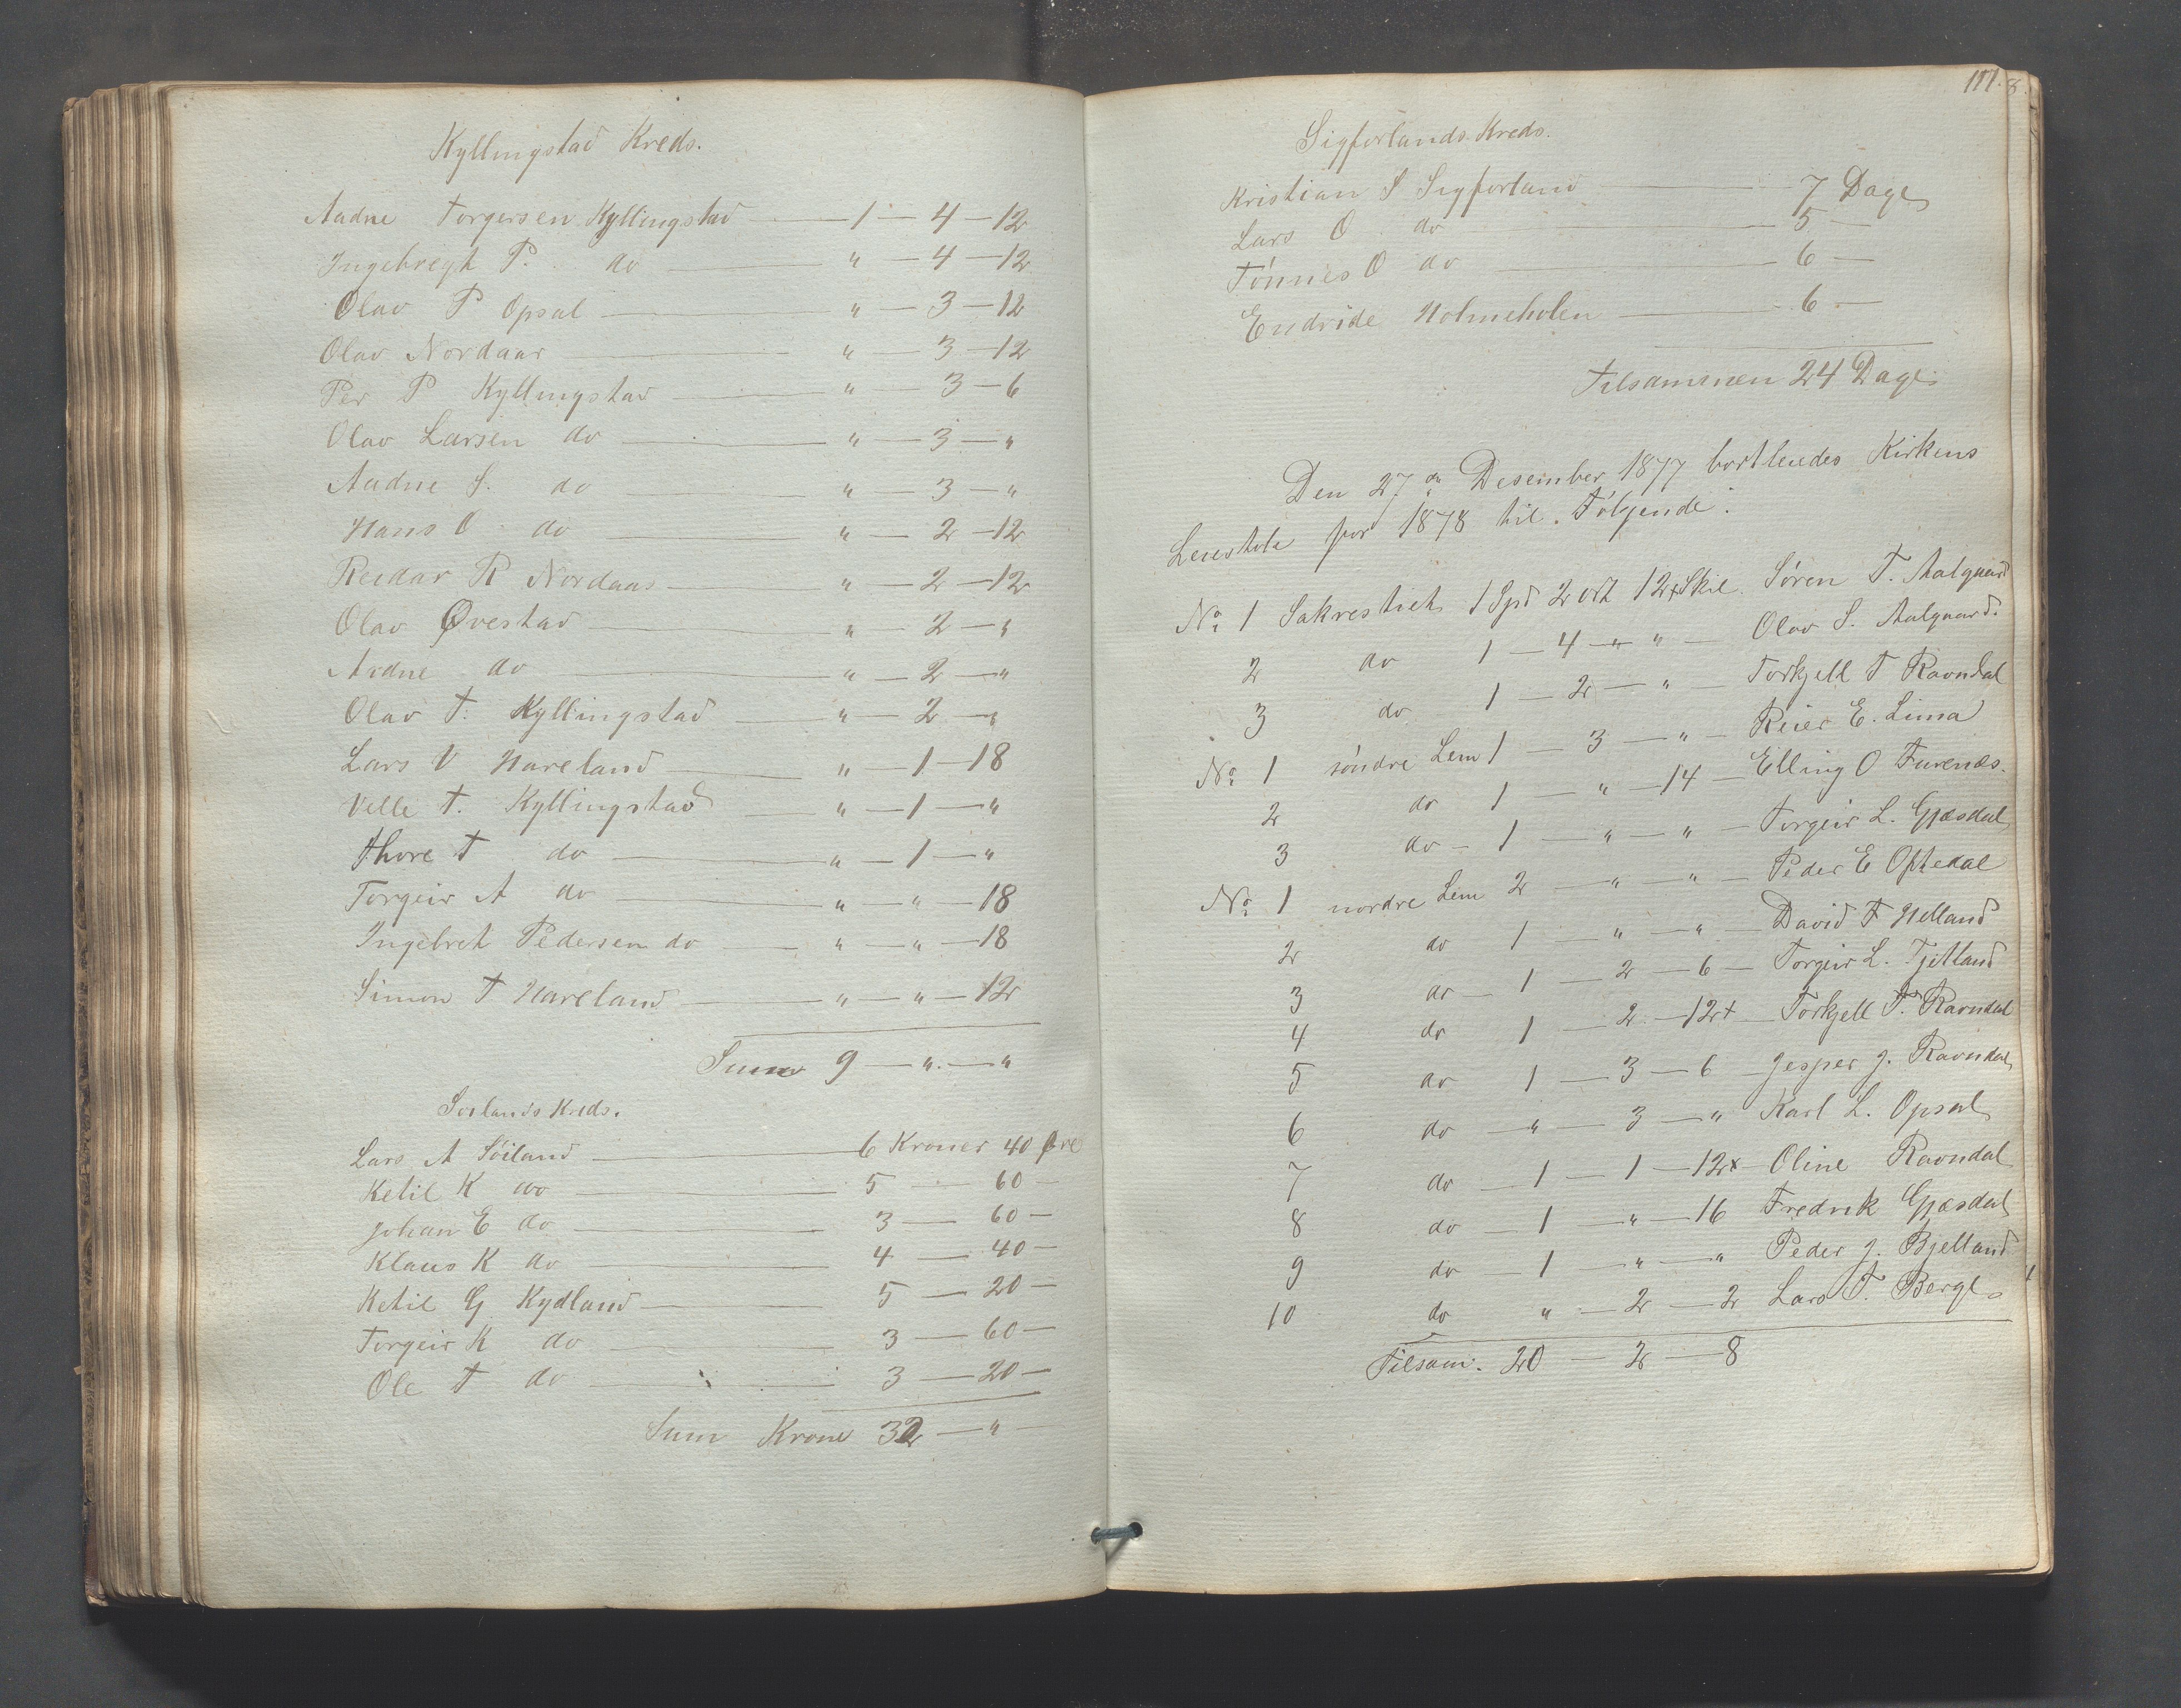 Kyllingstad Kreds.
Aadne Torgersen Kyllingstad — 1 — 4 — 12
Ingebregt P. do — " — 4 — 12
Olav P Opsal — " — 3 — 12
Olav Nordaas — " — 3 — 12
Per P Kyllingstad — " — 3 — 6
Olav Larsen do — " — 3 — "
Aadne S. do — " — 3 — "
Hans O do — " — 2 — 12
Reidar R Nordaas — " — 2 — 12
Olav Øvestad — " — 2 — "
Ardne do — " — 2 — "
Olav T. Kyllingstad — " — 2 — "
Lars V Hareland — " — 1 — 18
Velle T. Kyllingstad — " — 1 — "
Thore T do — " — 1 — "
Torgeir A do — " — " — 18
Ingebret Pedersen do — " — " — 18
Simon T Hareland — " — " — 12
Sum 9 — " — "
Soilands Kreds.
Lars A Söiland — 6 Kroner 40 Øre
Ketil K do — 5 — 60 —
Johan E do — 3 — 60 —
Klaus K do — 4 — 40 —
Ketil G Kydland — 5 — 20 —
Torgeir K do — 3 — 60 —
Ole T do — 3 — 20 —
Sum Krone 32 — " —
Sigforlands Kreds.
Kristian S Sigforland — 7 Dage
Lars O do — 5 —
Tönnes O do — 6 —
Endride Holmeholen — 6 —
Tilsammen 24 Dage
Den 27de Desember 1877 bortleiedes Kirkens
Leiestole for 1878 til Følgende:
No 1 Sakrestiet 1 Spd 2 ort 12+ Skil. Sören T. Aalgaard
2 do 1 — 4 — " " — Olav S. Aalgaard.
3 do 1 — 2 — " — Torkjell T Ravndal
No 1 söndre Lem 1 — 3 — " — Reier E. Lima
2 do 1 — " — 14 — Elling O Furenæs.
3 do — 1 — " — " — Torgeir L. Gjæsdal
No 1 nordre Lem 2 — " — " — Peder E Oftedal
2 do 1 — " — " — David T Helland
3 do — 1 — 2 — 6 — Torgeir L. Tjetland
4 do 1 — 2 — 12+ — Torkjell T. Ravndal
5 do 1 — 3 — 6 — Jesper J. Ravndal
6 do — " — 3 — " Karl L. Opsal
7 do — 1 — 1 — 12+ — Oline Ravndal
8 do — 1 — " — 16 Fredrik Gjæsdal
9 do — 1 — " — " Peder J. Bjelland
10 do " — 2 — 2 Lars T. Berge
Tilsam. 20 — 2 — 8